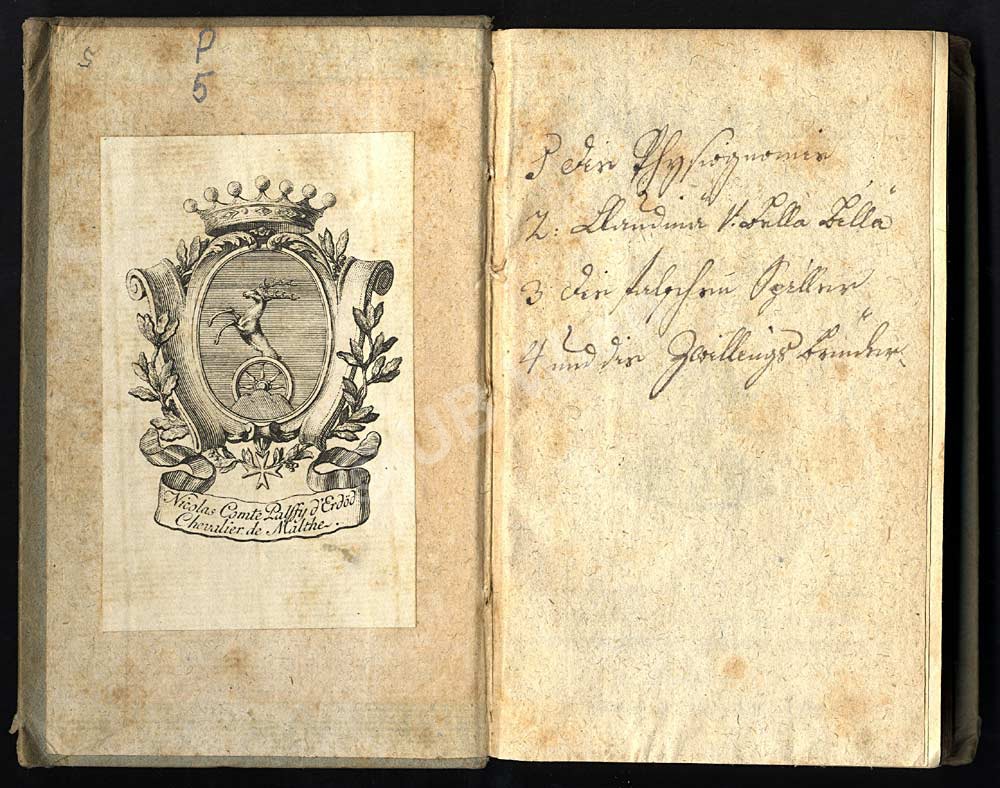 5
P
5
Nicolas Comte Palffy d'Erdöd
Chevalier de Malthe.
1 die Physiognomie
2: Claudina V: Bella Billa
3 die falschen Spiller
4 und die Zwillings brüder
UB